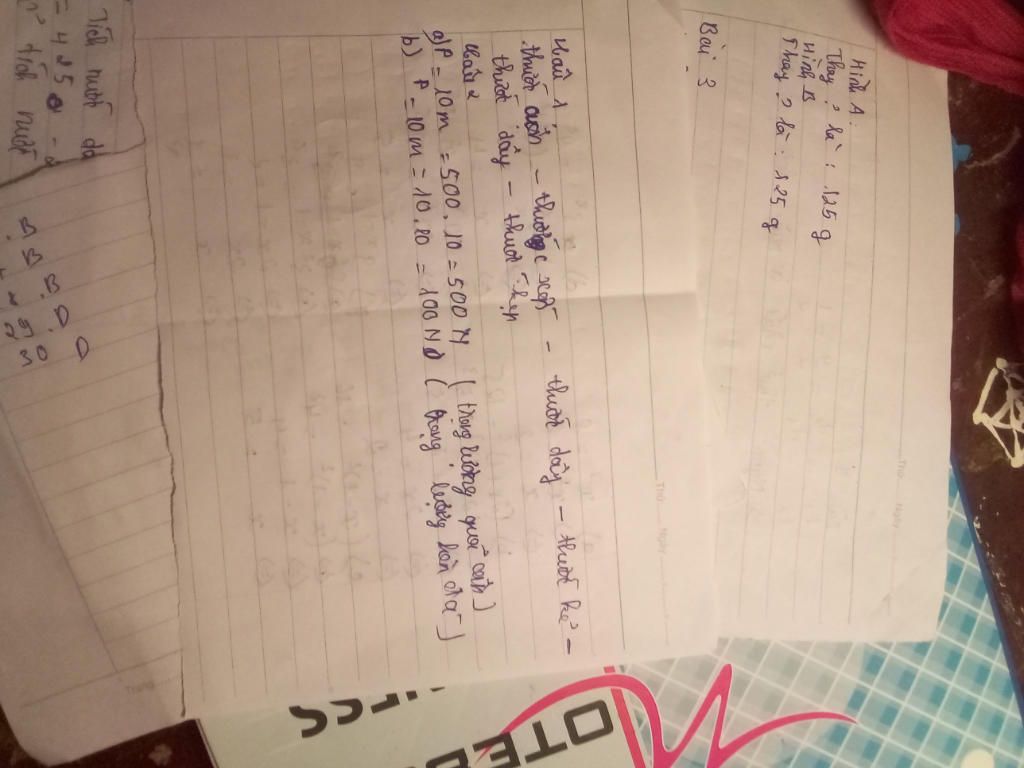 Hình A.
Thay ? là : 125 g
Hình B
Thay ? là : 125 g
Bài 3
Câu 1
thước cuộn - thước xếp - thước dây - thước kẻ -
thước dây - thước kẹp
Câu 2
a) P = 10m = 500.10 = 500 N ( trọng lượng quả cân )
b) P = 10m = 10.10 = 100 N ( trọng lượng hòn đá )
Thứ Ngày
Thứ Ngày
B
B
B
D
29
30 D
OTEB
NESS